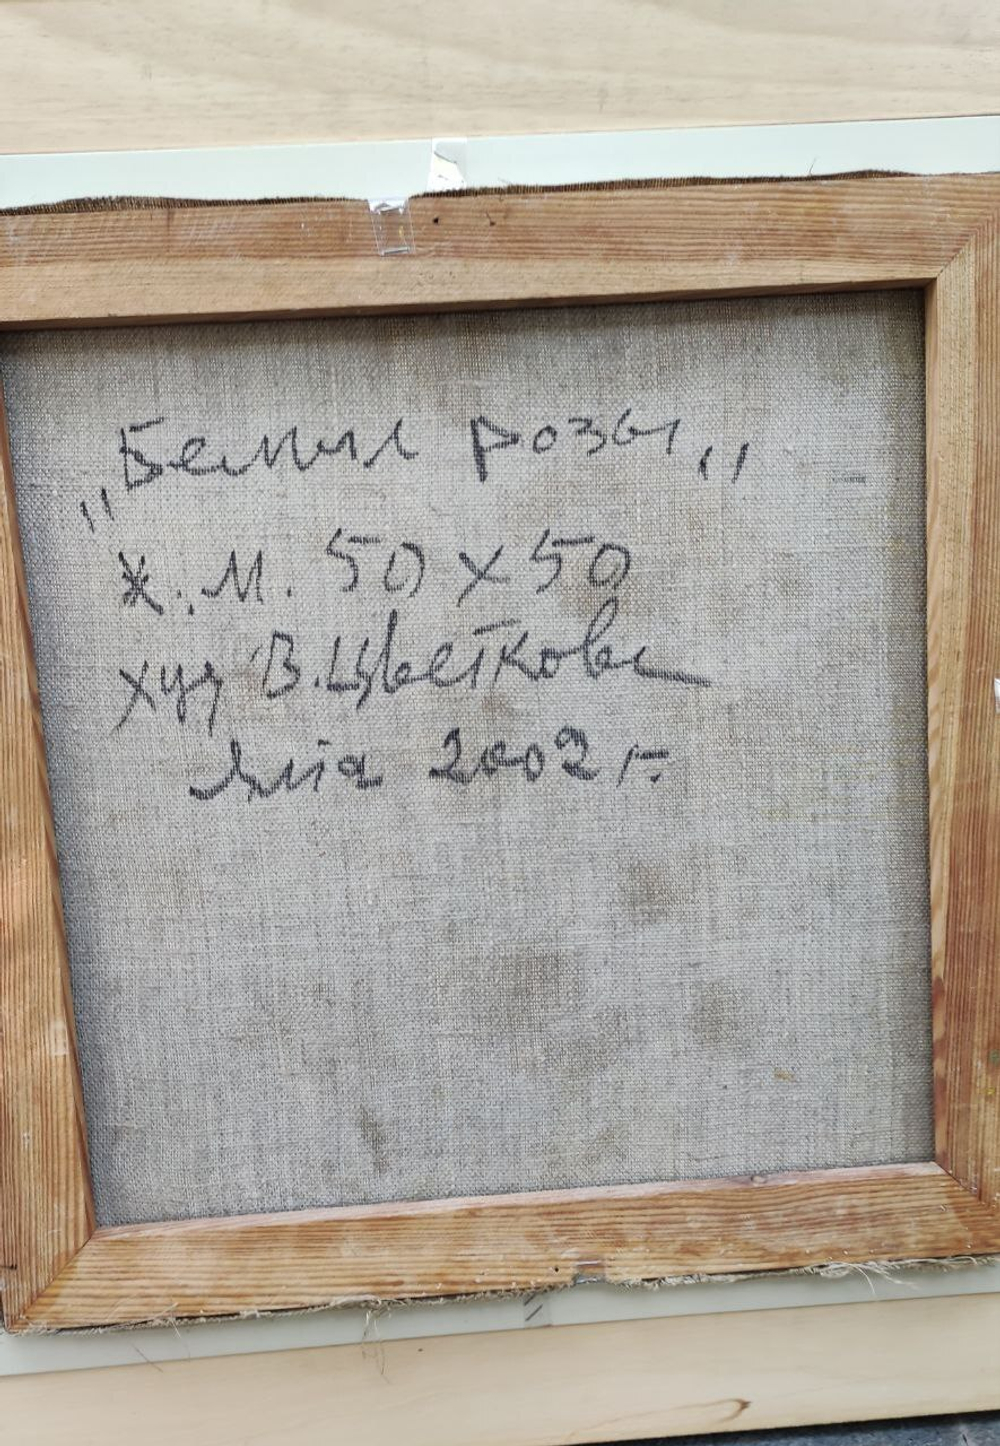 „Белые розы„
ж.м. 50 х 50
худ В.Цветкова
2002 г.